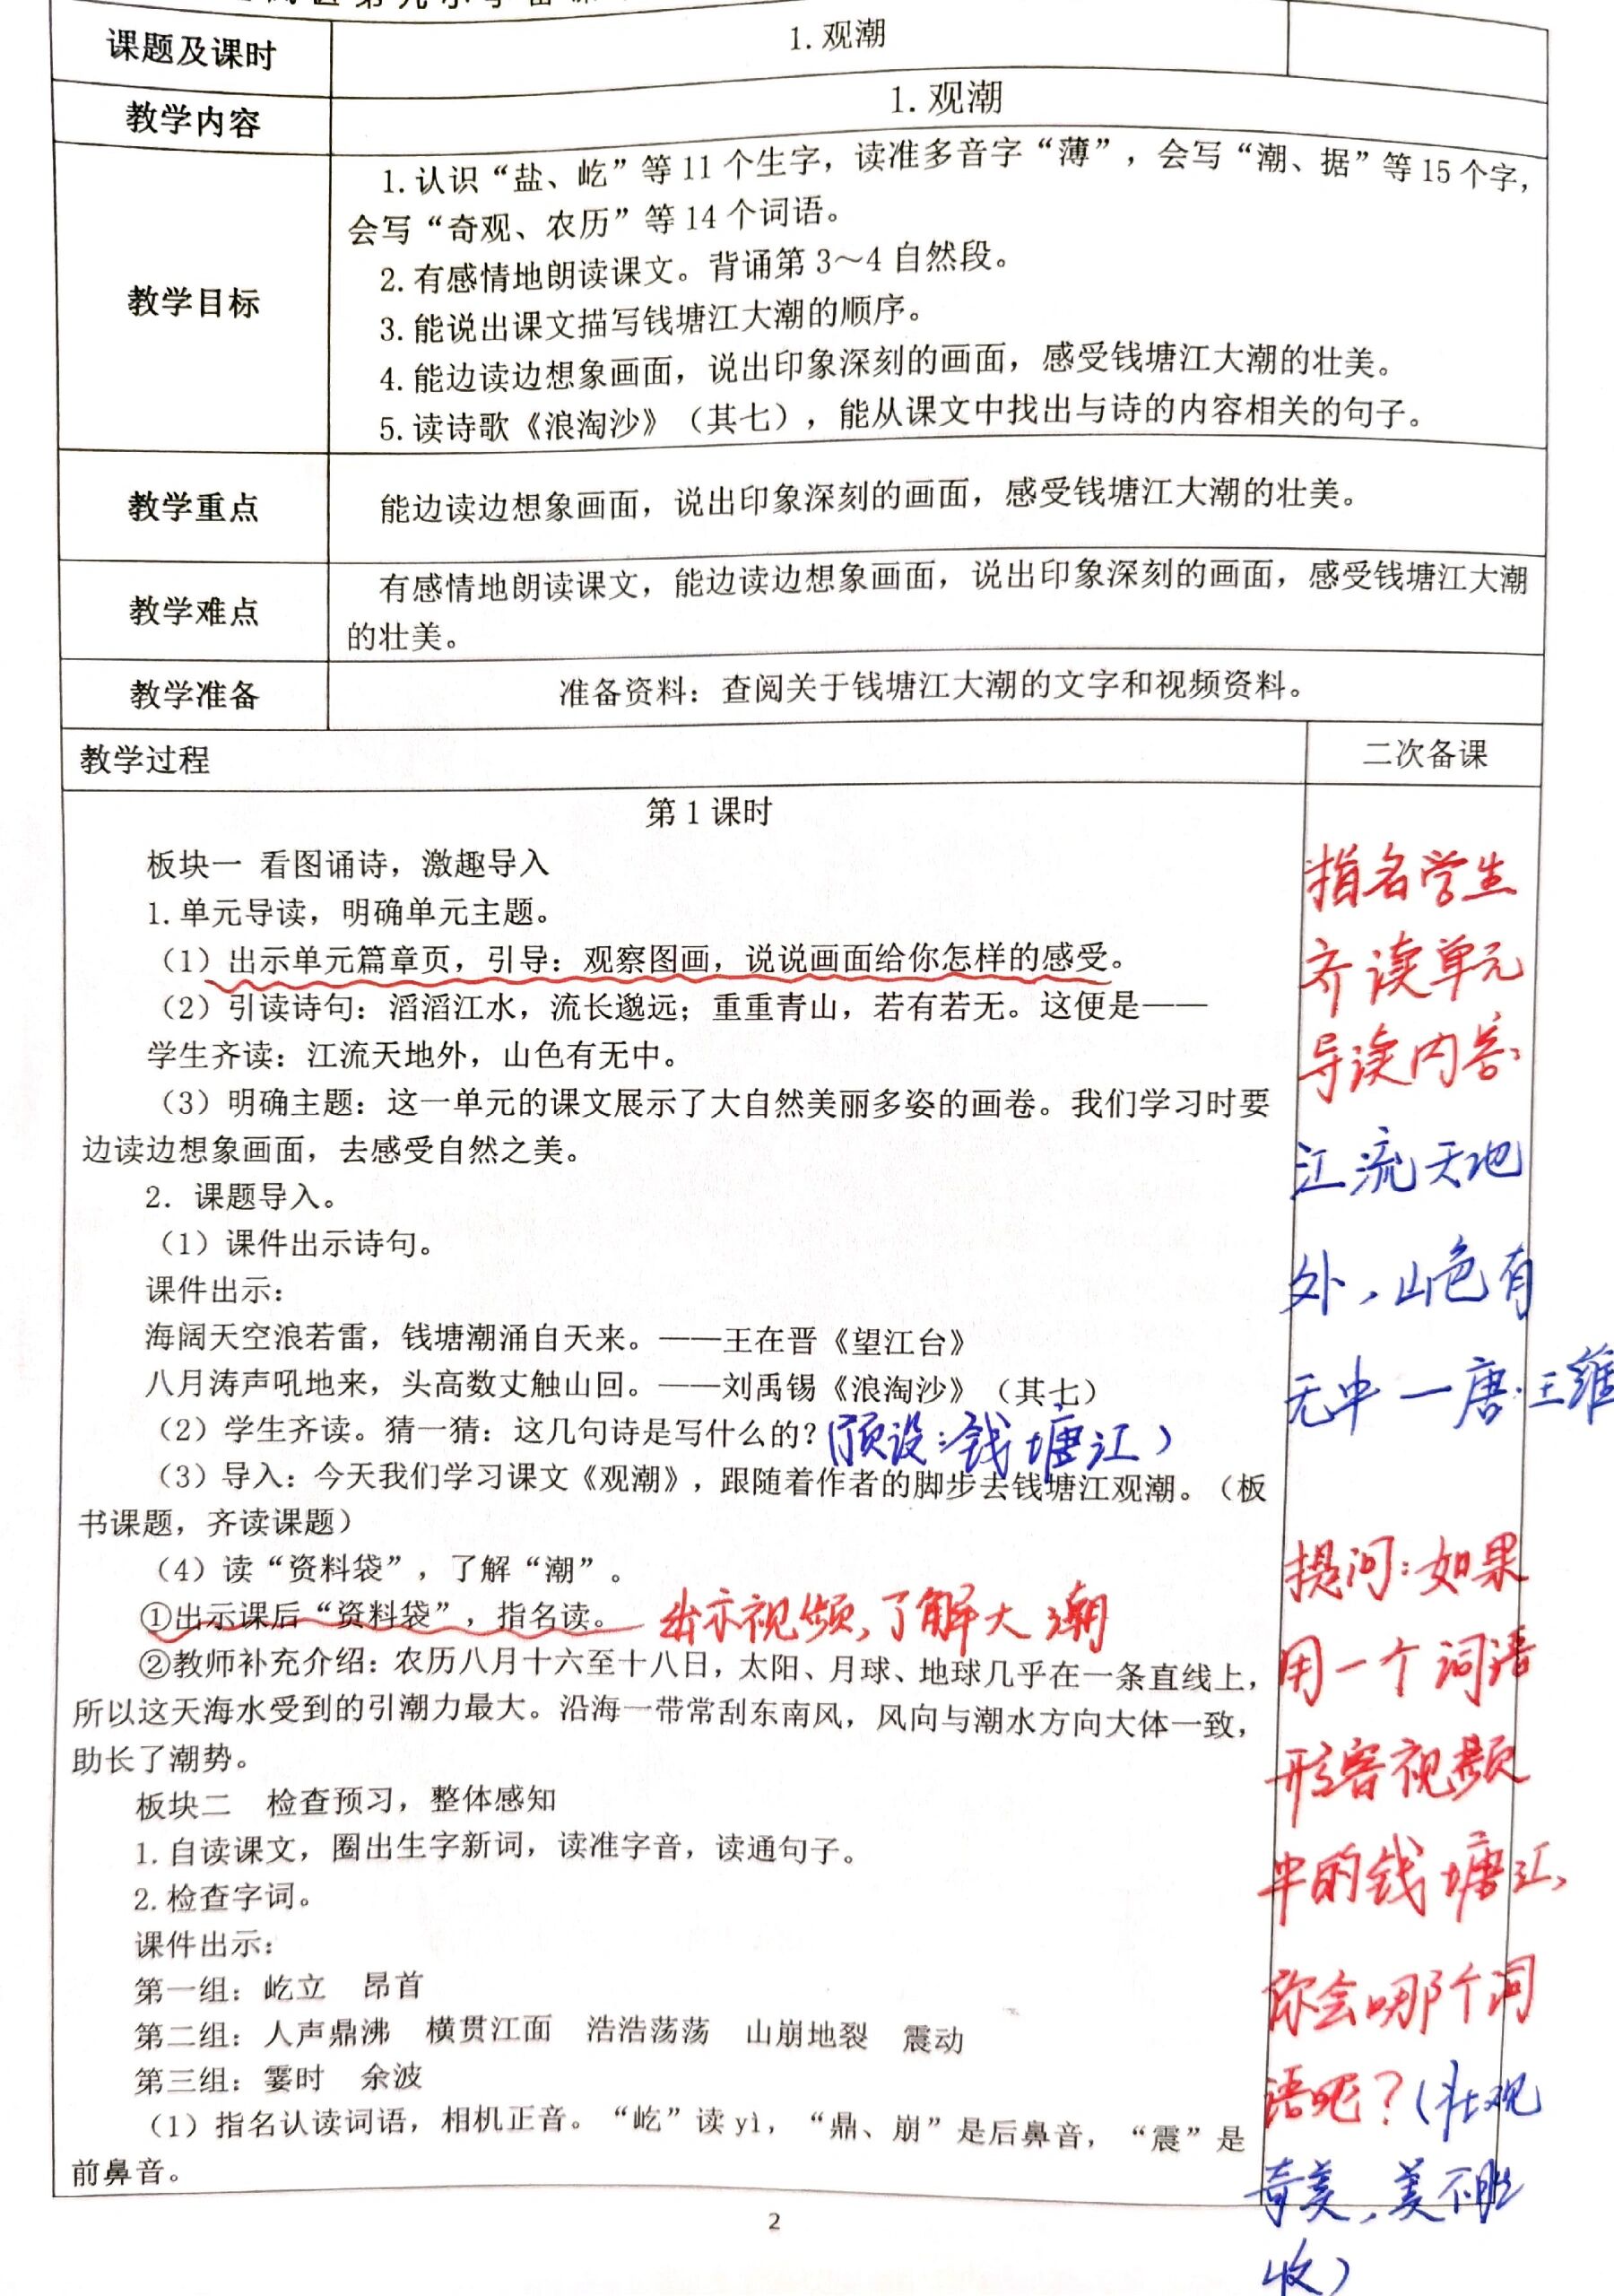 课题及课时
1.观潮
教学内容
1.观潮
教学目标
1.认识“盐、屹”等11个生字，读准多音字“薄”，会写“潮、据”等15个字，
会写“奇观、农历”等14个词语。
2.有感情地朗读课文。背诵第3～4自然段。
3.能说出课文描写钱塘江大潮的顺序。
4.能边读边想象画面，说出印象深刻的画面，感受钱塘江大潮的壮美。
5.读诗歌《浪淘沙》（其七），能从课文中找出与诗的内容相关的句子。
教学重点
能边读边想象画面，说出印象深刻的画面，感受钱塘江大潮的壮美。
教学难点
有感情地朗读课文，能边读边想象画面，说出印象深刻的画面，感受钱塘江大潮
的壮美。
教学准备
准备资料：查阅关于钱塘江大潮的文字和视频资料。
教学过程
二次备课
第1课时
板块一 看图诵诗，激趣导入
1.单元导读，明确单元主题。
（1）出示单元篇章页，引导：观察图画，说说画面给你怎样的感受。
（2）引读诗句：滔滔江水，流长邈远；重重青山，若有若无。这便是——
学生齐读：江流天地外，山色有无中。
（3）明确主题：这一单元的课文展示了大自然美丽多姿的画卷。我们学习时要
边读边想象画面，去感受自然之美。
2．课题导入。
（1）课件出示诗句。
课件出示：
海阔天空浪若雷，钱塘潮涌自天来。——王在晋《望江台》
八月涛声吼地来，头高数丈触山回。——刘禹锡《浪淘沙》（其七）
（2）学生齐读。猜一猜：这几句诗是写什么的？（预设：钱塘江）
（3）导入：今天我们学习课文《观潮》，跟随着作者的脚步去钱塘江观潮。（板
书课题，齐读课题）
（4）读“资料袋”，了解“潮”。
①出示课后“资料袋”，指名读。 出示视频，了解大潮
②教师补充介绍：农历八月十六至十八日，太阳、月球、地球几乎在一条直线上，
所以这天海水受到的引潮力最大。沿海一带常刮东南风，风向与潮水方向大体一致，
助长了潮势。
板块二 检查预习，整体感知
1.自读课文，圈出生字新词，读准字音，读通句子。
2.检查字词。
课件出示：
第一组：屹立 昂首
第二组：人声鼎沸 横贯江面 浩浩荡荡 山崩地裂 震动
第三组：霎时 余波
（1）指名认读词语，相机正音。“屹”读yì，“鼎、崩”是后鼻音，“震”是
前鼻音。
指名学生
齐读单元
导读内容
江流天地
外，山色有
无中 — 唐·王维
提问：如果
用一个词语
形容视频
中的钱塘江，
你会哪个词
语呢？（壮观
奇美，美不胜
收）
2